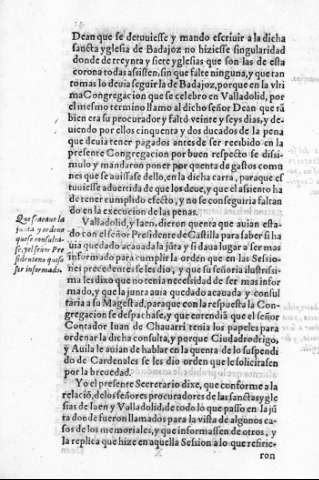 Dean que se detuuiesse y mando escriuir a la dicha
sancta yglesia de Badajoz no hiziesse singularidad
donde de treynta y siete yglesias que son las de esta
corona todas assisten, sin que falte ninguna, y que tan
to mas lo deuia seguir la de Badajoz, porque en la vlti
ma Congregacion que se celebro en Valladolid, por
el mesmo termino llamo al dicho señor Dean que tã
bien era su procurador y faltò veinte y seys dias, y de-
uiendo por ellos cinquenta y dos ducados de la pena
que deuia tener pagados antes de ser recebido en la
presente Congregacion por buen respecto se dissi-
mulo y mandaron poner por quenta de gastos comu
nes que se auisasse dello, en la dicha carta, para que es
tuuiesse aduertida de que los deue, y que el assiento ha
de tener cumplido efecto, y no se conseguiria faltan
do en la execucion de las penas.
Valladolid, y Iaen, dieron quenta que auian esta-
do con el señor Presidente de Castilla para saber si ha
uia quedado acauada la jũta y si daua lugar a ser mas
informado para cumplir la orden que en las Sessio-
nes precedentes se les dio, y que su señoria ilustrissi-
ma les dixo que no tenia necessidad de ser mas infor
mado, y que la junta auia quedado acauada y consul
taria a su Magestad, para que con la respuesta la Con-
gregacion se despachase, y que entendiã que el señor
Contador Iuan de Chauarri tenia los papeles para
ordenar la dicha consulta, y porque Ciudadrodrigo,
y Auila le auian de hablar en la quenta de lo suspendi
do de Cardenales se les dio orden que le solicitassen
por la breuedad.
Yo el presente Secretario dixe, que conforme a la
relació, de los señores procuradores de las sanctas ygle
sias de Iaen y Valladolid, de todo lo que passo en la jũ
ta donde fueron llamados para la vista de algunos ca-
sos de los memoriales, y que informassen de otros, y
la replica que hize en aquella Session a lo que refirie-
ron
Que se acauò la
junta y ordeno
que se consultas-
se, y el señor Pre
sidente no quiso
ser informado.